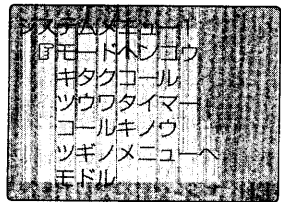 システムメニュー1
☞モードヘンコウ
キタクコール
ツウワタイマー
コールキノウ
ツギノメニューヘ
モドル